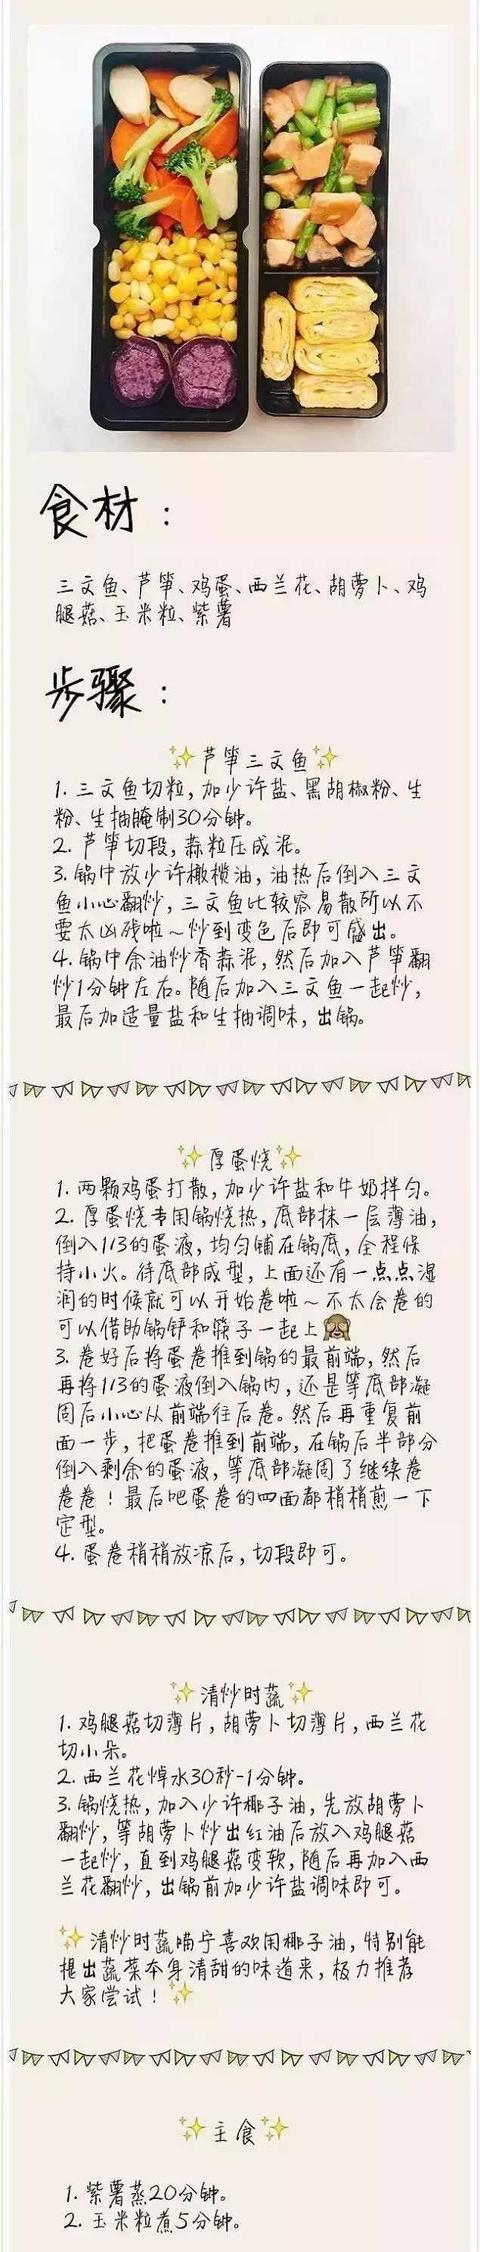 食材：
三文鱼、芦笋、鸡蛋、西兰花、胡萝卜、鸡
腿菇、玉米粒、紫薯
步骤：
✨芦笋三文鱼✨
1. 三文鱼切粒，加少许盐、黑胡椒粉、生
粉、生抽腌制30分钟。
2. 芦笋切段，蒜粒压成泥。
3. 锅中放少许橄榄油，油热后倒入三文
鱼小心翻炒，三文鱼比较容易散所以不
要太凶残啦～炒到变色后即可盛出。
4. 锅中余油炒香蒜泥，然后加入芦笋翻
炒1分钟左右。随后加入三文鱼一起炒，
最后加适量盐和生抽调味，出锅。
✨厚蛋烧✨
1. 两颗鸡蛋打散，加少许盐和牛奶拌匀。
2. 厚蛋烧专用锅烧热，底部抹一层薄油，
倒入1/3的蛋液，均匀铺在锅底，全程保
持小火。待底部成型，上面还有一点点湿
润的时候就可以开始卷啦～不太会卷的
可以借助锅铲和筷子一起上🙈
3. 卷好后将蛋卷推到锅的最前端，然后
再将1/3的蛋液倒入锅内，还是等底部凝
固后小心从前端往后卷。然后再重复前
面一步，把蛋卷推到前端，在锅后半部分
倒入剩余的蛋液，等底部凝固了继续卷
卷卷！最后吧蛋卷的四面都稍稍煎一下
定型。
4. 蛋卷稍稍放凉后，切段即可。
✨清炒时蔬✨
1. 鸡腿菇切薄片，胡萝卜切薄片，西兰花
切小朵。
2. 西兰花焯水30秒-1分钟。
3. 锅烧热，加入少许椰子油，先放胡萝卜
翻炒，等胡萝卜炒出红油后放入鸡腿菇
一起炒，直到鸡腿菇变软，随后再加入西
兰花翻炒，出锅前加少许盐调味即可。
✨清炒时蔬喵宁喜欢用椰子油，特别能
提出蔬菜本身清甜的味道来，极力推荐
大家尝试！✨
✨主食✨
1. 紫薯蒸20分钟。
2. 玉米粒煮5分钟。